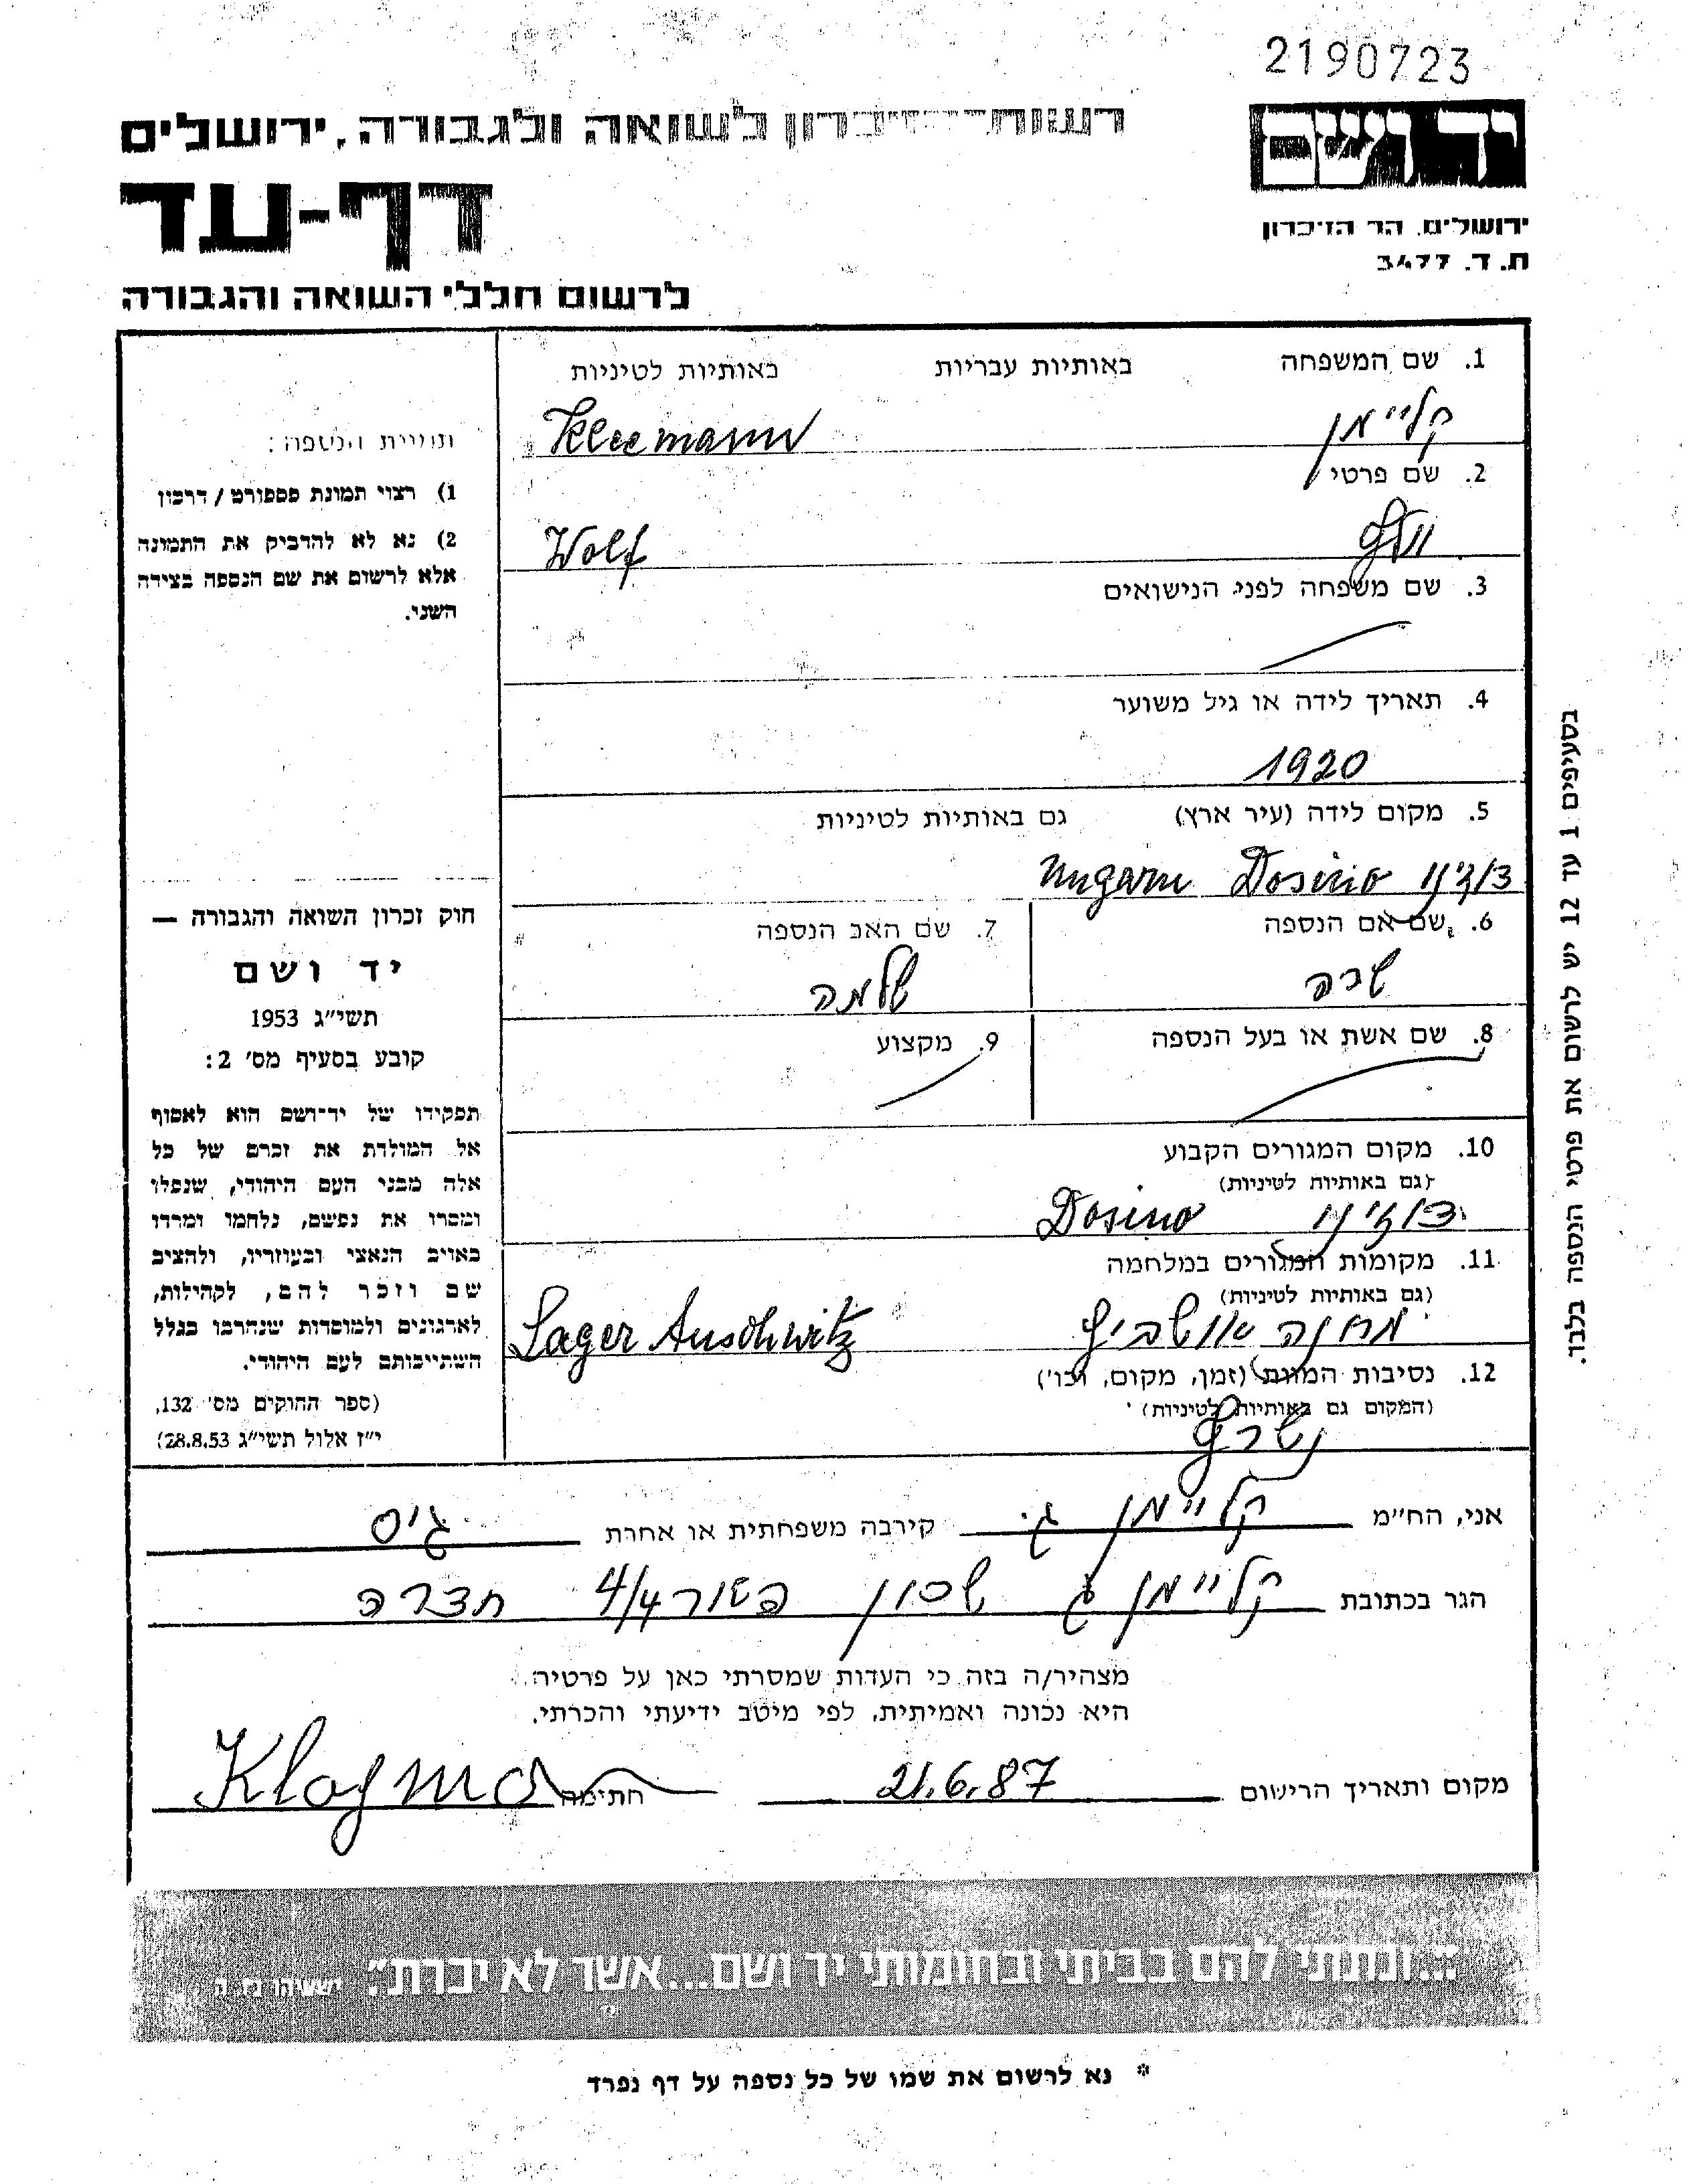 2190723
רשות הזיכרון לשואה ולגבורה, ירושלים
יד ושם
דף-עד
ירושלים, הר הזיכרון
ת. ד. 3477
לרשום חללי השואה והגבורה
1. שם המשפחה באותיות עבריות באותיות לטיניות
קליימן Kleemann
2. שם פרטי
וולף Wolf
3. שם משפחה לפני הנישואים
4. תאריך לידה או גיל משוער
1920
5. מקום לידה (עיר ארץ) גם באותיות לטיניות
Dosino Ungarn
6. שם אם הנספה
שרה
7. שם האב הנספה
שלמה
8. שם אשת או בעל הנספה
9. מקצוע
10. מקום המגורים הקבוע
(גם באותיות לטיניות)
Dosino
11. מקומות המגורים במלחמה
(גם באותיות לטיניות)
מחנה אושביץ Lager Auschwitz
12. נסיבות המוות (זמן, מקום, וכו')
(המקום גם באותיות לטיניות)
נשרף
תמונת הנספה:
1) רצוי תמונת פספורט / דרכון
2) נא לא להדביק את התמונה
אלא לרשום את שם הנספה בצידה
השני.
חוק זכרון השואה והגבורה —
יד ושם
תשי״ג 1953
קובע בסעיף מס' 2:
תפקידו של יד־ושם הוא לאסוף
אל המולדת את זכרם של כל
אלה מבני העם היהודי, שנפלו
ומסרו את נפשם, נלחמו ומרדו
באויב הנאצי ובעוזריו, ולהציב
שם וזכר להם, לקהילות,
לארגונים ולמוסדות שנחרבו בגלל
השתייכותם לעם היהודי.
(ספר החוקים מס' 132,
י״ז אלול תשי״ג 28.8.53)
בסעיפים 1 עד 12 יש לרשום את פרטי הנספה בלבד.
אני, הח״מ קליימן ג. קירבה משפחתית או אחרת גיס
הגר בכתובת קליימן ג שכון 4/4 חדרה
מצהיר/ה בזה כי העדות שמסרתי כאן על פרטיה
היא נכונה ואמיתית, לפי מיטב ידיעתי והכרתי.
מקום ותאריך הרישום 21.6.87 חתימה
״...ונתתי להם בביתי ובחומותי יד ושם...אשר לא יכרת״. ישעיהו נו, ה
* נא לרשום את שמו של כל נספה על דף נפרד